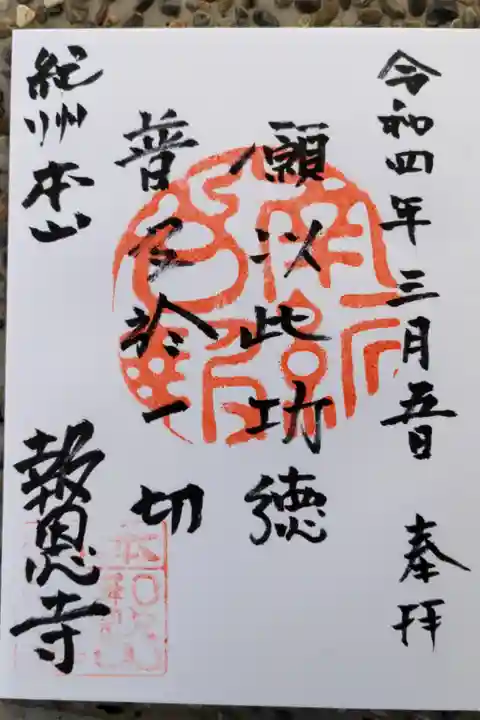 令和四年三月五日 奉拝
願以此功徳
普及於一切
紀州本山 報恩寺